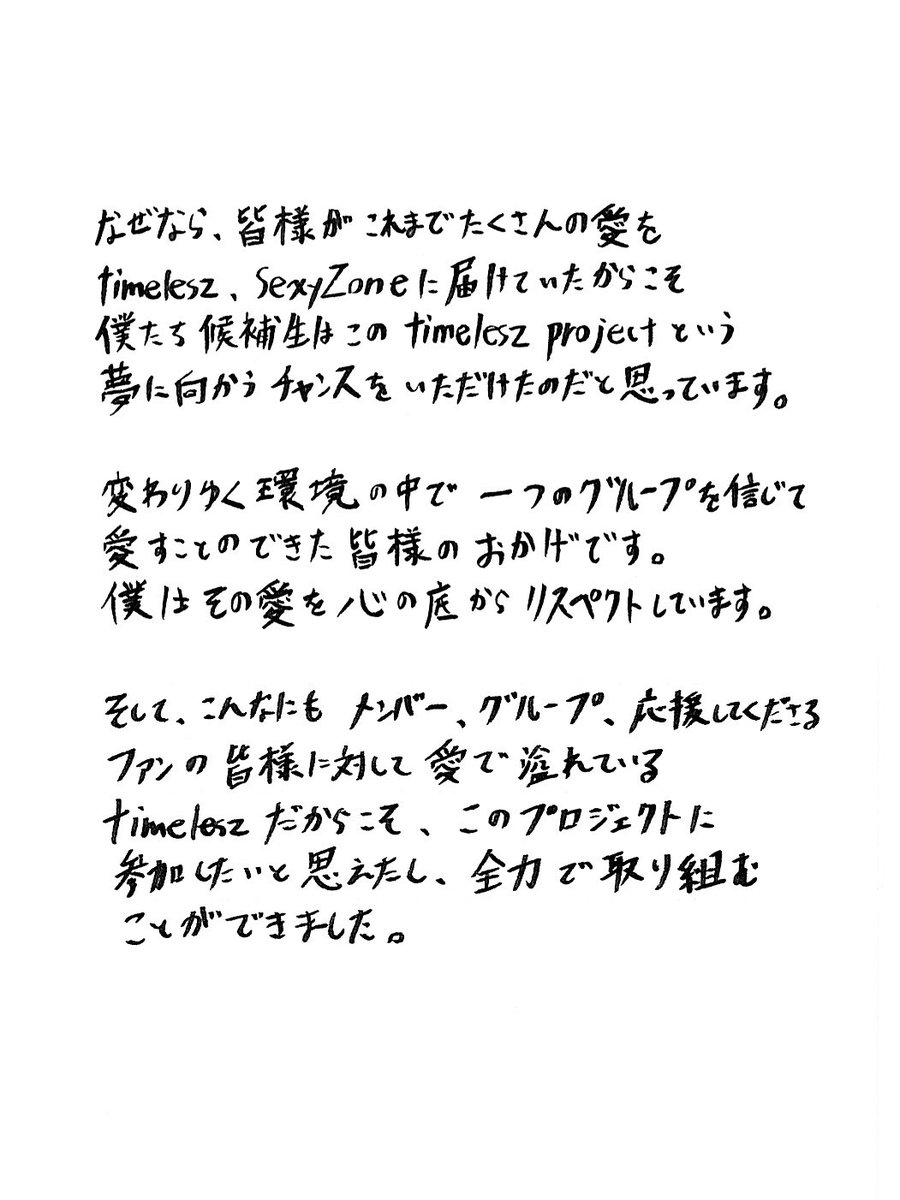 なぜなら、皆様がこれまでたくさんの愛を
timelesz、SexyZoneに届けていたからこそ
僕たち候補生はこの timelesz project という
夢に向かうチャンスをいただけたのだと思っています。
変わりゆく環境の中で一つのグループを信じて
愛すことのできた皆様のおかげです。
僕はその愛を心の底からリスペクトしています。
そして、こんなにもメンバー、グループ、応援してくださる
ファンの皆様に対して愛で溢れている
timelesz だからこそ、このプロジェクトに
参加したいと思えたし、全力で取り組む
ことができました。